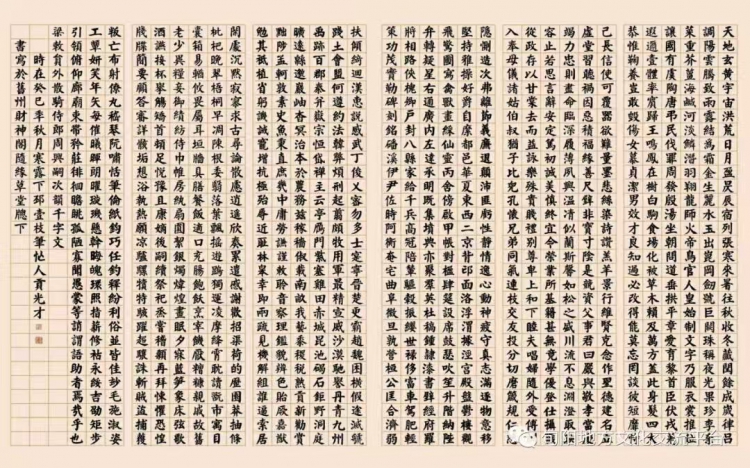 天地玄黃宇宙洪荒日月盈昃辰宿列張寒來暑往秋收冬藏閏餘成歲律呂
調陽雲騰致雨露結為霜金生麗水玉出崑岡劍號巨闕珠稱夜光果珍李柰
菜重芥薑海鹹河淡鱗潛羽翔龍師火帝鳥官人皇始制文字乃服衣裳推位
讓國有虞陶唐弔民伐罪周發殷湯坐朝問道垂拱平章愛育黎首臣伏戎羌
遐邇壹體率賓歸王鳴鳳在樹白駒食場化被草木賴及萬方蓋此身髮四大
恭惟鞠養豈敢毀傷女慕貞潔男效才良知過必改得能莫忘罔談彼短靡恃
己長信使可覆器欲難量墨悲絲染詩讚羔羊景行維賢克念作聖德建名立
虛堂習聽禍因惡積福緣善慶尺璧非寶寸陰是競資父事君曰嚴與敬孝當
竭力忠則盡命臨深履薄夙興溫凊似蘭斯馨如松之盛川流不息淵澄取映
容止若思言辭安定篤初誠美慎終宜令榮業所基籍甚無竟學優登仕攝職
從政存以甘棠去而益詠樂殊貴賤禮別尊卑上和下睦夫唱婦隨外受傅訓
入奉母儀諸姑伯叔猶子比兒孔懷兄弟同氣連枝交友投分切磨箴規仁慈
隱惻造次弗離節義廉退顛沛匪虧性靜情逸心動神疲守真志滿逐物意移
堅持雅操好爵自縻都邑華夏東西二京背邙面洛浮渭據涇宮殿盤鬱樓觀
飛驚圖寫禽獸畫彩仙靈丙舍傍啟甲帳對楹肆筵設席鼓瑟吹笙升階納陛
弁轉疑星右通廣內左達承明既集墳典亦聚群英杜稿鍾隸漆書壁經府羅
將相路俠槐卿戶封八縣家給千兵高冠陪輦驅轂振纓世祿侈富車駕肥輕
策功茂實勒碑刻銘磻溪伊尹佐時阿衡奄宅曲阜微旦孰營桓公匡合濟弱
扶傾綺迴漢惠說感武丁俊乂密勿多士寔寧晉楚更霸趙魏困橫假途滅虢
踐土會盟何遵約法韓弊煩刑起翦頗牧用軍最精宣威沙漠馳譽丹青九州
禹跡百郡秦并嶽宗恒岱禪主云亭雁門紫塞雞田赤城昆池碣石鉅野洞庭
曠遠綿邈巖岫杳冥治本於農務茲稼穡俶載南畝我藝黍稷稅熟貢新勸賞
黜陟孟軻敦素史魚秉直庶幾中庸勞謙謹敕聆音察理鑑貌辨色貽厥嘉猷
勉其祗植省躬譏誡寵增抗極殆辱近恥林皋幸即兩疏見機解組誰逼索居
閑處沉默寂寥求古尋論散慮逍遙欣奏累遣慼謝歡招渠荷的歷園莽抽條
枇杷晚翠梧桐早凋陳根委翳落葉飄颻遊鵾獨運凌摩絳霄耽讀翫市寓目
囊箱易輶攸畏屬耳垣牆具膳餐飯適口充腸飽飫烹宰飢厭糟糠親戚故舊
老少異糧妾御績紡侍巾帷房紈扇圓潔銀燭煒煌晝眠夕寐藍筍象床弦歌
酒讌接杯舉觴矯手頓足悅豫且康嫡後嗣續祭祀烝嘗稽顙再拜悚懼恐惶
牋牒簡要顧答審詳骸垢想浴執熱願涼驢騾犢特駭躍超驤誅斬賊盜捕獲
叛亡布射僚丸嵇琴阮嘯恬筆倫紙鈞巧任釣釋紛利俗並皆佳妙毛施淑姿
工顰妍笑年矢每催曦暉朗曜璇璣懸斡晦魄環照指薪修祜永綏吉劭矩步
引領俯仰廊廟束帶矜莊徘徊瞻眺孤陋寡聞愚蒙等誚謂語助者焉哉乎也
梁敕員外散騎侍郎周興嗣次韻千字文
時在癸巳季秋月寒露下邳壹枝筆忙人貢光才
書寫於舊州財神閣隨緣草堂牕下
旬阳地方文化交流平台